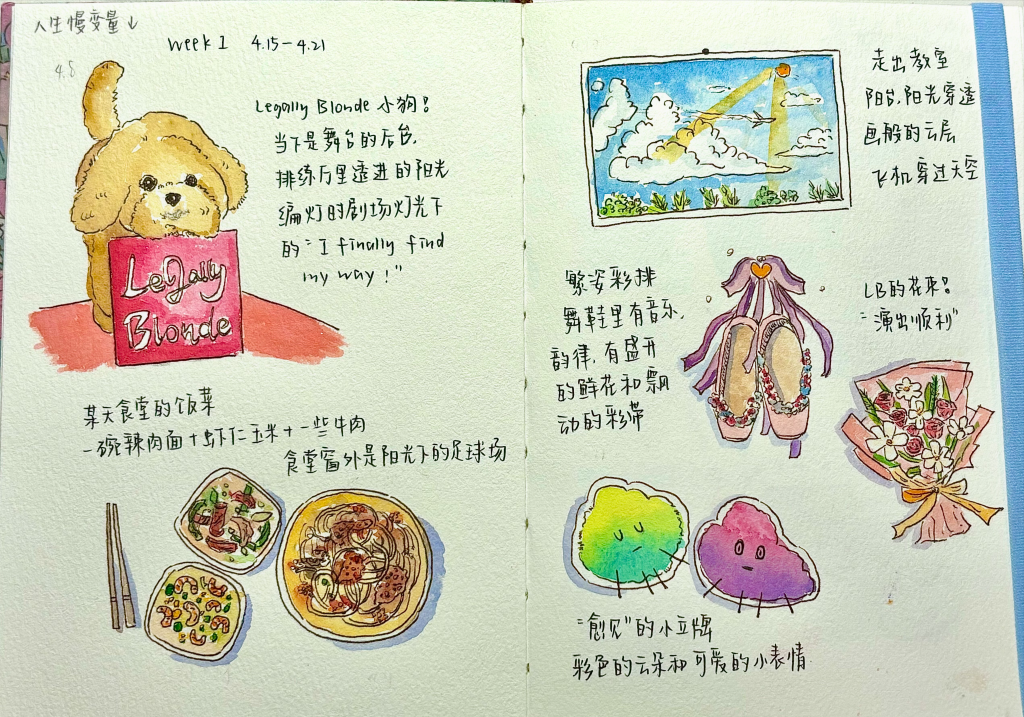 人生慢变量↓
Week 1 4.15-4.21
4.8
Legally Blonde 小狗:
当下是舞台的后台,
排练厅里透进的阳光
编灯时剧场灯光下
的“I finally find
my way!”
Legally
Blonde
某天食堂的饭菜
一碗辣肉面+虾仁玉米+一些牛肉
食堂窗外是阳光下的足球场
走出教室
阳台,阳光穿透
画般的云层
飞机穿过天空
繁姿彩排
舞鞋里有音乐,
韵律,有盛开
的鲜花和飘
动的彩带
LB的花束:
“演出顺利”
“愈见”的小立牌
彩色的云朵和可爱的小表情